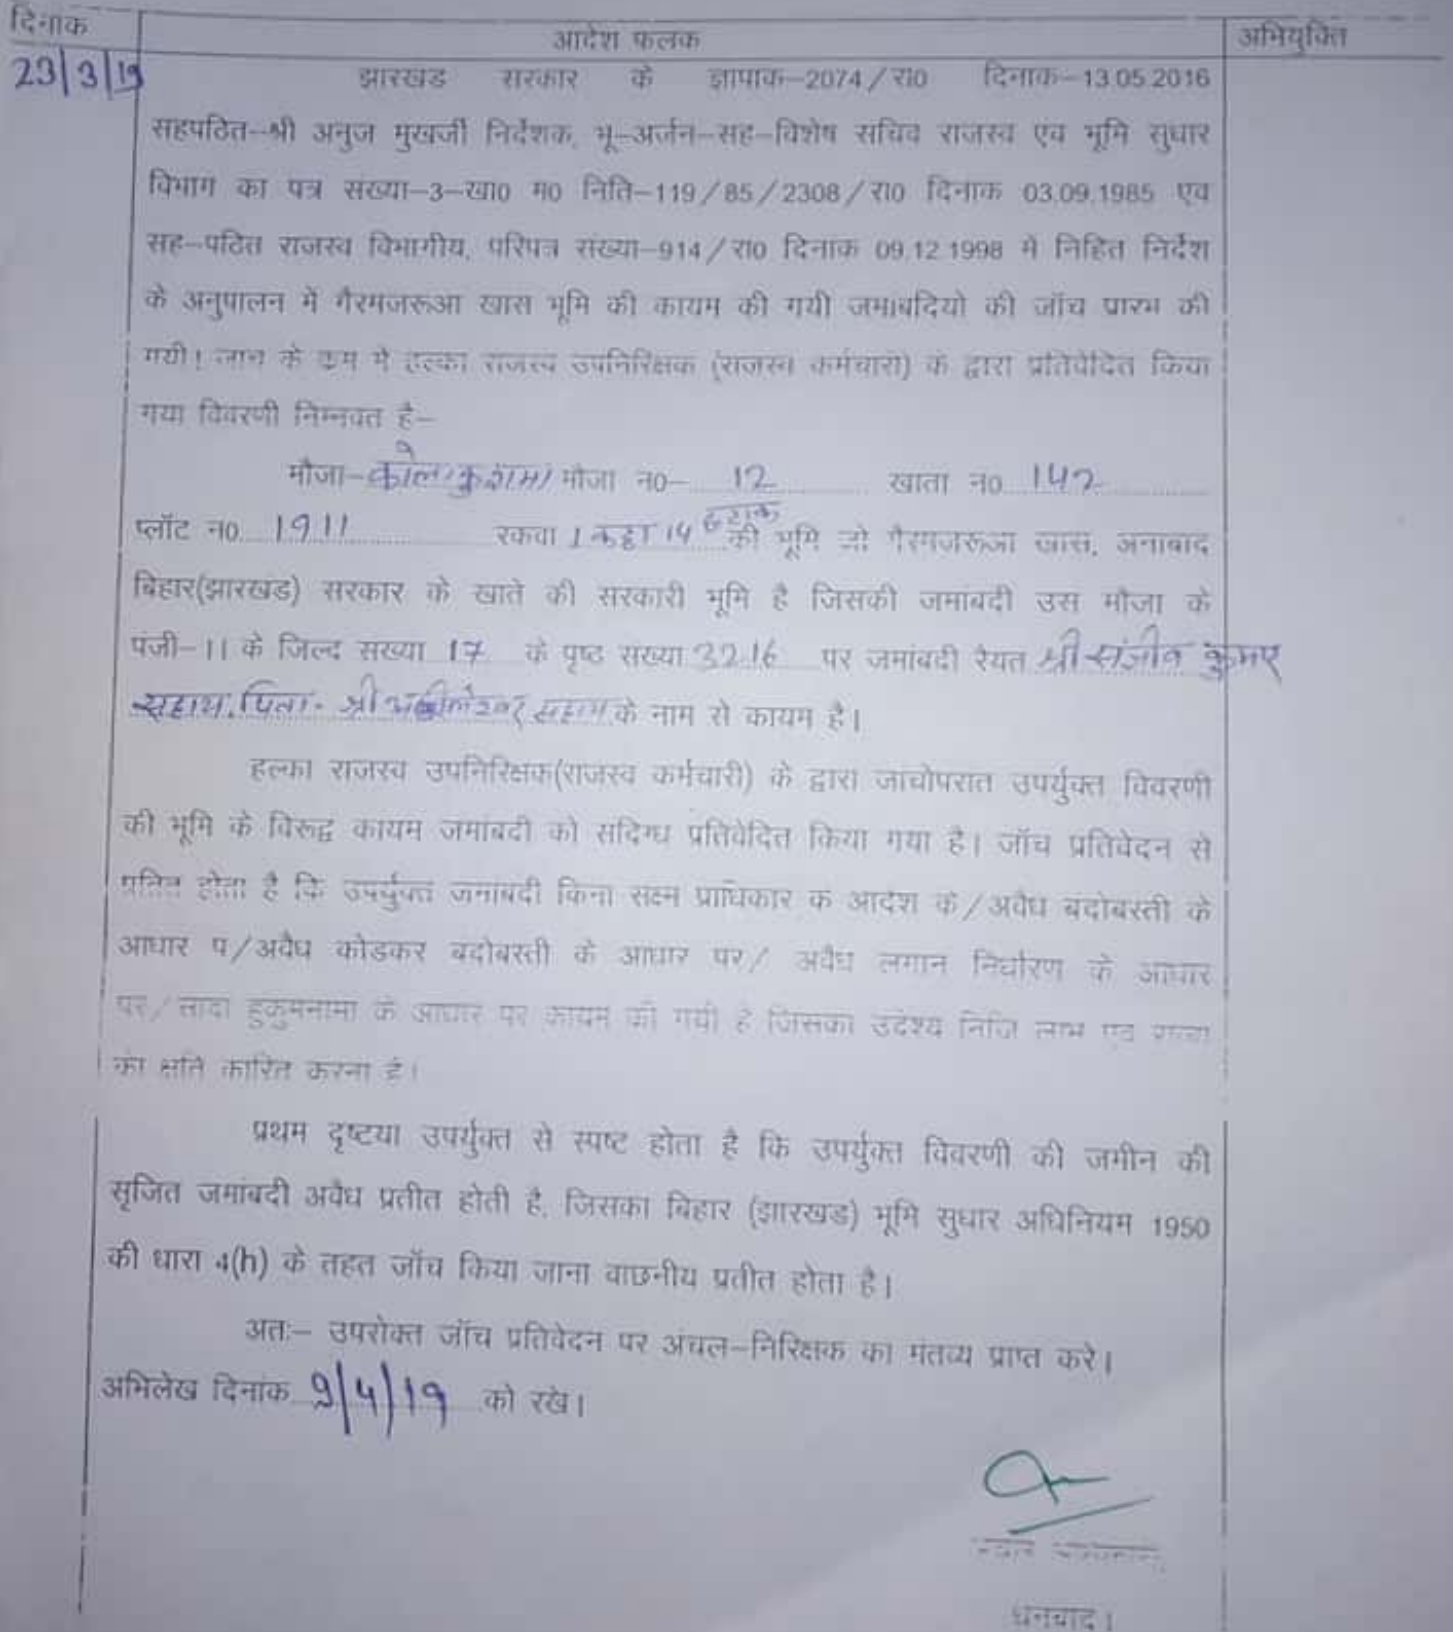 दिनांक
आदेश फलक
अभियुक्ति
23/3/19
झारखंड सरकार के ज्ञापांक-2074/रा0 दिनांक-13.05.2016
सहपठित-श्री अनुज मुखर्जी निर्देशक, भू-अर्जन-सह-विशेष सचिव राजस्व एवं भूमि सुधार
विभाग का पत्र संख्या-3-खा0 म0 निति-119/85/2308/रा0 दिनांक 03.09.1985 एवं
सह-पठित राजस्व विभागीय, परिपत्र संख्या-914/रा0 दिनांक 09.12.1998 में निहित निर्देश
के अनुपालन में गैरमजरूआ खास भूमि की कायम की गयी जमाबंदियो की जॉच प्रारंभ की
गयी। जाच के क्रम में हल्का राजस्व उपनिरिक्षक (राजस्व कर्मचारी) के द्वारा प्रतिवेदित किया
गया विवरणी निम्नवत है-
मौजा- मौजा न0- 12 खाता न0 142
प्लॉट न0 1911 रकवा 1 कट्ठा 14 छटाक की भूमि जो गैरमजरूआ खास, अनाबाद
बिहार(झारखंड) सरकार के खाते की सरकारी भूमि है जिसकी जमांबदी उस मौजा के
पंजी-11 के जिल्द संख्या 17 के पृष्ठ संख्या 3216 पर जमांबदी रैयत श्री संजीव कुमार
सहाय, पिता- श्री सहाय के नाम से कायम है।
हल्का राजस्व उपनिरिक्षक(राजस्व कर्मचारी) के द्वारा जांचोपरांत उपर्युक्त विवरणी
की भूमि के विरूद्व कायम जमांबदी को संदिग्ध प्रतिवेदित किया गया है। जॉच प्रतिवेदन से
प्रतित होता है कि उपर्युक्त जमांबदी बिना सक्ष्म प्राधिकार के आदेश के/अवैध बंदोबस्ती के
आधार प/अवैध कोडकर बंदोबस्ती के आधार पर/ अवैध लगान निर्धारण के आधार
पर/सादा हुकुमनामा के आधार पर कायम की गयी है जिसका उदेश्य निजि लाभ एवं राज्य
को क्षति कारित करना है।
प्रथम दृष्टया उपर्युक्त से स्पष्ट होता है कि उपर्युक्त विवरणी की जमीन की
सृजित जमांबदी अवैध प्रतीत होती है, जिसका बिहार (झारखंड) भूमि सुधार अधिनियम 1950
की धारा 4(h) के तहत जॉच किया जाना वाछनीय प्रतीत होता है।
अतः- उपरोक्त जॉच प्रतिवेदन पर अंचल-निरिक्षक का मंतव्य प्राप्त करे।
अभिलेख दिनांक 9/4/19 को रखे।
धनबाद।